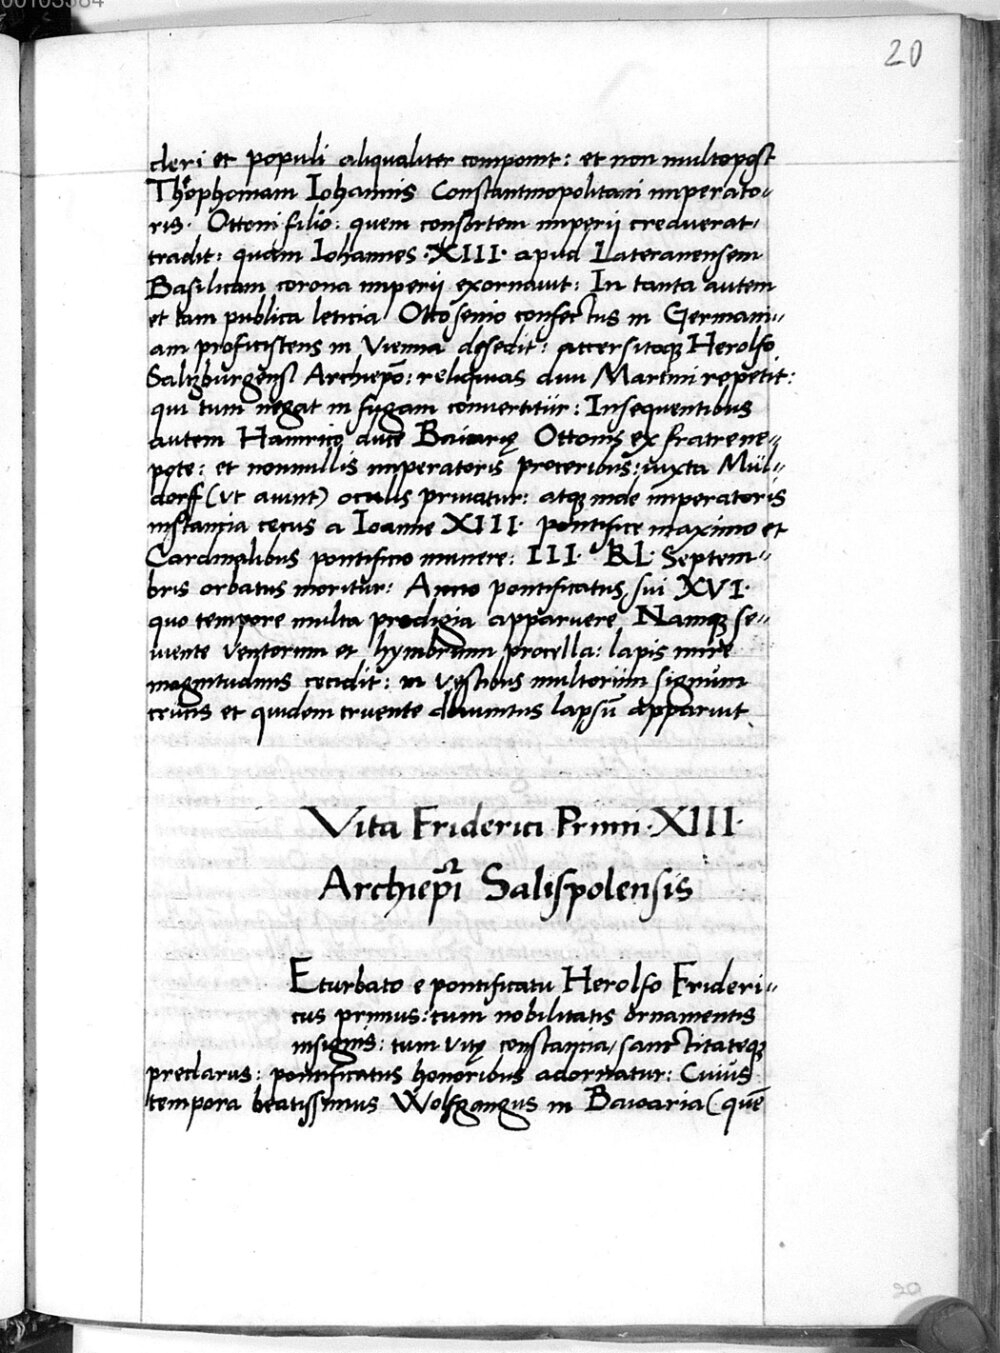 20
cleri et populi aliqualiter componit: et non multo post
Theophoniam Iohannis Constantinopolitani imperato-
ris. Ottoni filio: quem consortem imperii creaverat,
tradit: quam Iohannes .XIII. apud Lateranensem
Basilicam corona imperii exornavit: In tanta autem
et tam publica leticia Otto senio confectus in Germani-
am proficistens in Vienna desedit: accersitoqȝ Herolfo
Saltzburgensi Archiepo: reliquias divi Martini repetit:
qui tum negat in fugam convertitur: Insequentibus
autem Hainrico duce Baivarię Ottonis ex fratre ne-
pote: et nonnullis imperatoris proceribus: iuxta Mül-
dorff (ut aiunt) oculis privatur: atqȝ inde imperatoris
instancia cecus a Ioanne XIII. pontifice maximo et
Cardinalibus pontificio munere: III. KL. Septem-
bris orbatus moritur: Anno pontificatus sui XVI.
quo tempore multa prodigia apparuere Namqȝ se-
viente ventorum et hymbrium procella: lapis mire
magnitudinis cecidit: in vestibus multorum signum
crucis et quidem cruente divinitus lapsū apparuit
Vita Friderici Primi .XIII.
Archiepi Salispolensis
Eturbato e pontificatu Herolfo Frideri-
cus primus: tum nobilitatis ornamentis
insignis: tum vitę constancia, sanctitateqȝ
preclarus: pontificatus honoribus adornatur: Cuius
tempora beatissimus Wolfgangus in Bavoaria (quē
20